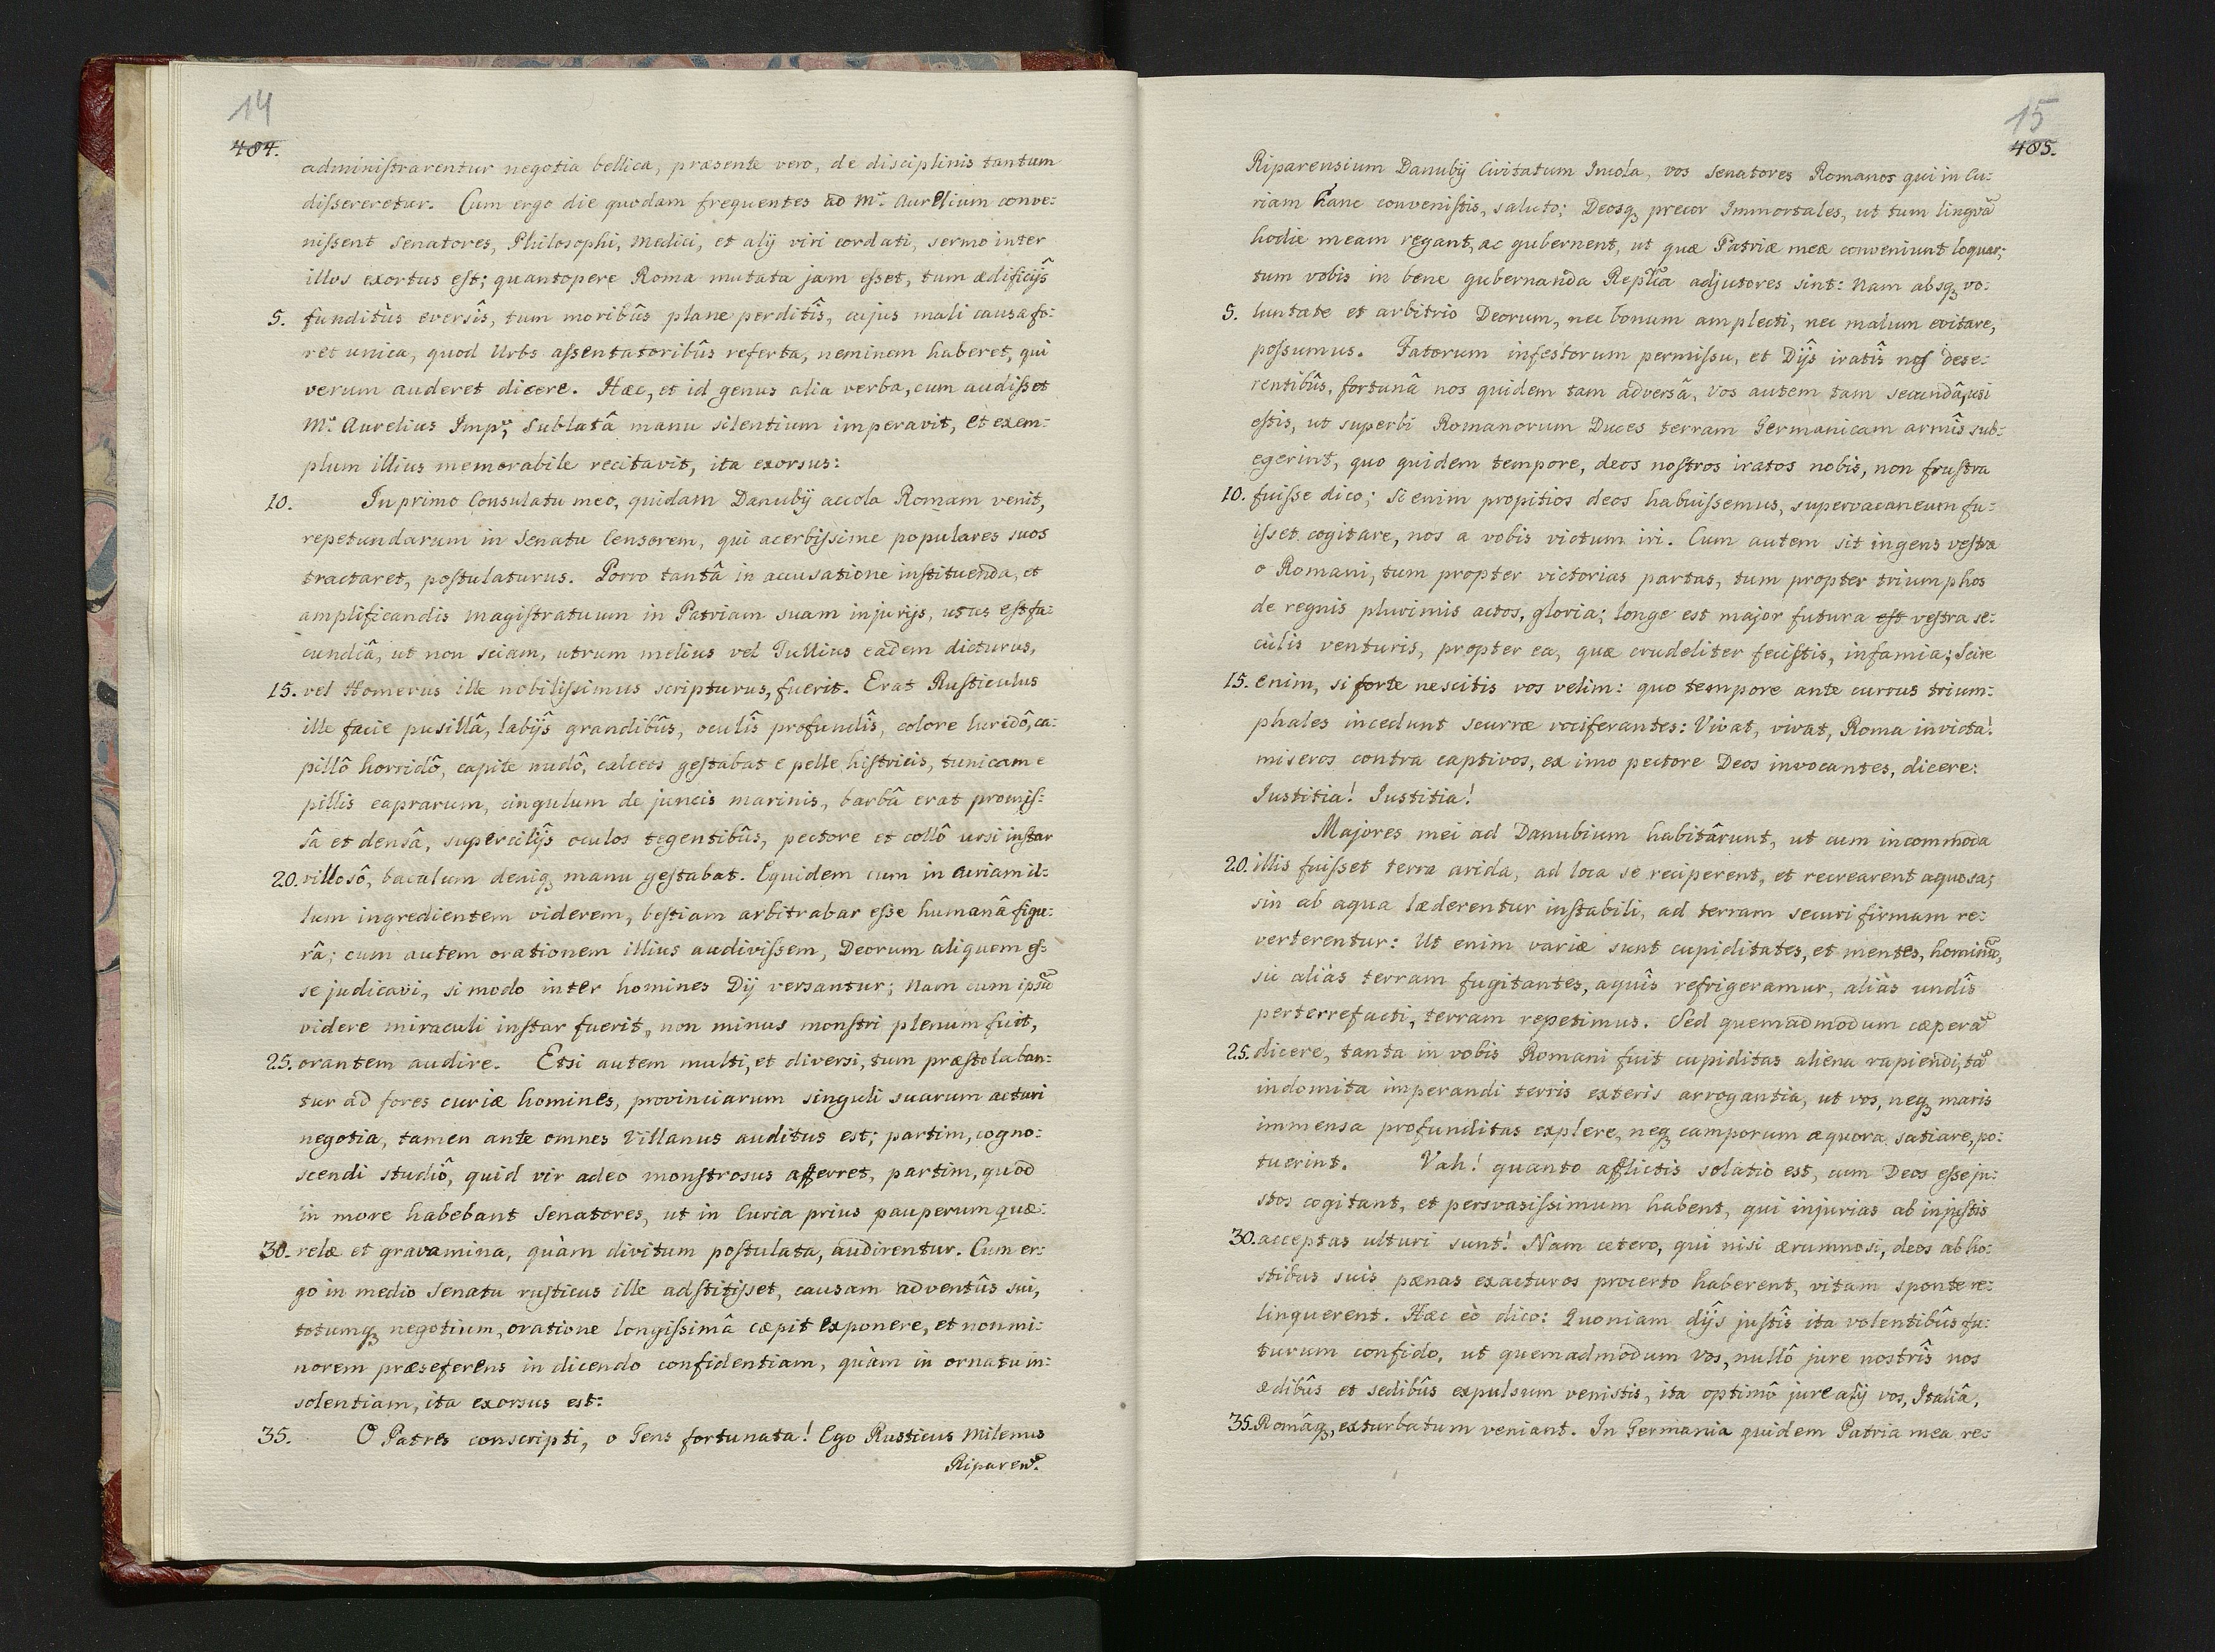 14
484.
administrarentur negotia bellica, præsente vero, de disciplinis tantum
dissereretur. Cum ergo die quodam frequentes ad M. Aurelium conve:
nissent Senatores, Philosophi, Medici, et alij viri cordati, sermo inter
illos exortus est; quantopere Roma mutata jam esset, tum ædificijs̑
5. funditùs eversîs, tum moribûs plane perditîs, cujus mali causa fo:
ret unica, quod Urbs assentatoribûs referta, neminem haberet, qui
verum auderet dicere. Hæc, et id genus alia verba, cum audisset
M. Aurelius Imp., sublatâ manu silentium imperavit, et exem:
plum illius memorabile recitavit, ita exorsus:
10. In primo Consulatu meo, quidam Danubij accola Romam venit,
repetundarum in Senatu Censorem, qui acerbissime populares suos
tractaret, postulaturus. Porro tantâ in accusatione instituenda, et
amplificandis magistratuum in Patriam suam injurijs, usus est fa:
cundiâ, ut non sciam, utrum melius vel Tullius eadem dicturus,
15. vel Homerus ille nobilissimus scripturus, fuerit. Erat Rusticulus
ille facie pusillâ, labijs̑ grandibûs, oculîs profundîs, colore luridô, ca:
pillô horridô, capite nudô, calceos gestabat e pelle histricis, tunicam e
pillis caprarum, cingulum de juncis marinis, barbâ erat promis:
sâ et densâ, supercilijs̑ oculos tegentibûs, pectore et collô ursi instar
20. villosô, baculum deniq; manu gestabat. Equidem cum in curiam il:
lum ingredientem viderem, bestiam arbitrabar esse humanâ figu:
râ; cum autem orationem illius audivissem, Deorum aliquem es:
se judicavi, si modo inter homines Dij versantur; Nam cum ipsu̅
videre miraculi instar fuerit, non minus monstri plenum fuit,
25. orantem audire. Etsi autem multi, et diversi, tum præstolaban:
tur ad fores curiæ homines, provinciarum singuli suarum acturi
negotia, tamen ante omnes Villanus auditus est; partim, cogno:
scendi studiô, quid vir adeo monstrosus afferret, partim, quod
in more habebant Senatores, ut in Curia prius pauperum quæ:
30. relæ et gravamina, quàm divitum postulata, audirentur. Cum er:
go in medio Senatu rusticus ille adstitisset, causam adventûs sui,
totumq; negotium, oratione longissimâ cæpit exponere, et non mi:
norem præseferens in dicendo confidentiam, quàm in ornatu in:
solentiam, ita exorsus est:
35. O Patres conscripti, o Gens fortunata! Ego Rusticus Milenus
Riparens.
15
485.
Riparensium Danubij Civitatum Incola, vos Senatores Romanos qui in Cu:
riam hanc convenistis, saluto; Deosq; precor Immortales, ut tum lingva̅
hodie meam regant, ac gubernent, ut quæ Patriæ meæ conveniunt loquar;
tum vobis in bene gubernanda Repl̅ica adjutores sint: Nam absq; vo:
5. luntate et arbitrio Deorum, nec bonum amplecti, nec malum evitare,
possumus. Fatorum infestorum permissu, et Dijs̑ iratîs nos dese:
rentibûs, fortunâ nos quidem tam adversâ, vos autem tam secundâ, usi
estis, ut superbi Romanorum Duces terram Germanicam armîs sub:
egerint, quo quidem tempore, deos nostros iratos nobis, non frustra
10. fuisse dico; Si enim propitios deos habuissemus, supervacaneum fu:
isset cogitare, nos a vobis victum iri. Cum autem sit ingens vestra
o Romani, tum propter victorias partas, tum propter triumphos
de regnis plurimis actos, gloria; longe est major futura est vestra se:
culis venturis, propter ea, quæ crudeliter fecistis, infamia; Scire
15. enim, si forte nescitis vos velim: quo tempore ante currus trium:
phales incedunt scurræ vociferantes: Vivat, vivat, Roma invicta!
miseros contra captivos, ex imo pectore Deos invocantes, dicere:
Iustitia! Iustitia!
Majores mei ad Danubium habitârunt, ut cum incommoda
20. illis fuisset terra arida, ad loca se reciperent, et recrearent aquosa;
sin ab aqua læderentur instabili, ad terram securi firmam re:
verterentur: Ut enim variæ sunt cupiditates, et mentes, hominu̅,
sic aliàs terram fugitantes, aquîs refrigeramur, aliàs undîs
perterrefacti, terram repetimus. Sed quemadmodum cæpera̅
25. dicere, tanta in vobis Romani fuit cupiditas aliena rapiendi, ta̅
indomita imperandi terris exteris arrogantia, ut vos, neq; maris
immensa profunditas explere, neq; camporum æquora satiare, po:
tuerint. Vah! quanto afflictis solatio est, cum Deos esse ju:
stos cogitant, et persvasissimum habent, qui injurias ab injustis
30. acceptas ulturi sunt! Nam cetero, qui nisi ærumnosi, deos ab ho:
stibus suis pænas exacturos procerto haberent, vitam sponte re:
linquerent. Hæc eò dico: Quoniam dijs̑ justîs ita volentibûs fu:
turum confido, ut quemadmodum vos, nullô jure nostrîs nos
ædibûs et sedibûs expulsum venistis, ita optimô jure alij vos, Italiâ,
35. Româq;, exturbatum veniant. In Germania quidem Patria mea re: